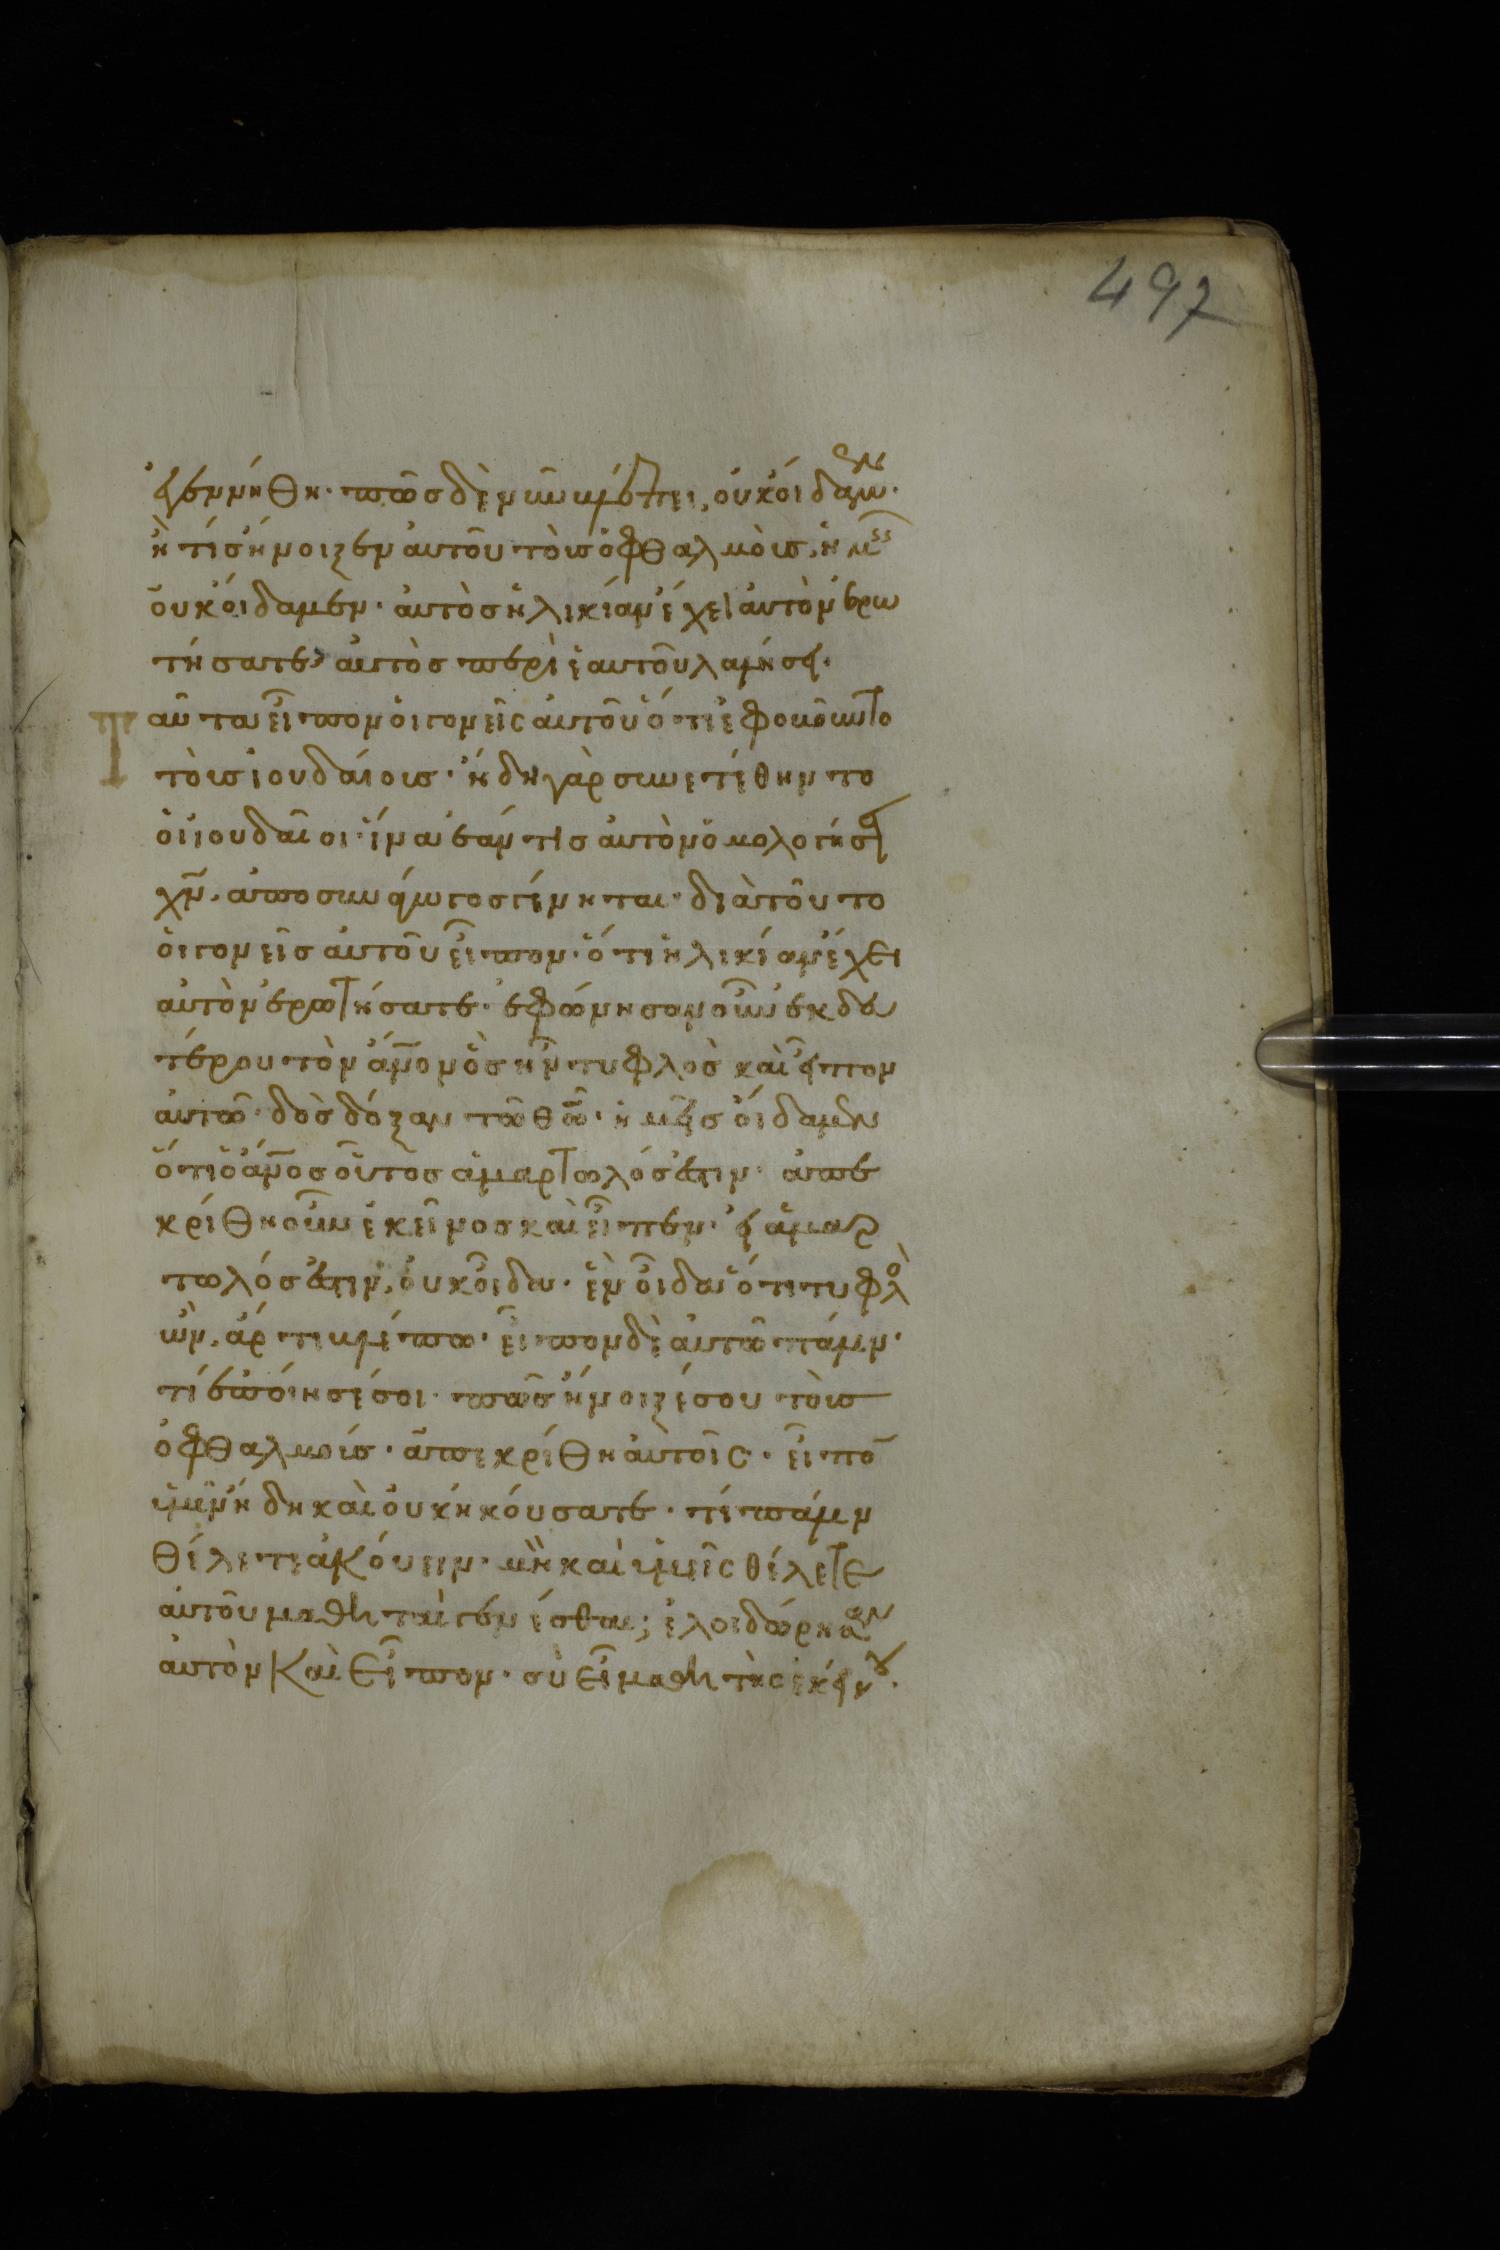 497
ἐγεννήθη· πῶς δὲ νῦν βλέπει, οὐκ οἴδαμεν·
ἢ τίς ἤνοιξεν αὐτοῦ τοὺς ὀφθαλμοὺς, ἡμεῖς
οὐκ οἴδαμεν· αὐτὸς ἡλικίαν ἔχει αὐτὸν ἐρω
τήσατε, αὐτὸς περὶ ἑαυτοῦ λαλήσει·
Ταῦτα εἶπον οἱ γονεῖς αὐτοῦ ὅτι ἐφοβοῦντο
τοὺς ἰουδαίους· ἤδη γὰρ συνετέθηντο
οἱ ἰουδαῖοι· ἵνα ἐάν τις αὐτὸν ὁμολογήσῃ
χν̅, ἀποσυνάγωγος γένηται· διὰ τοῦτο
οἱ γονεῖς αὐτοῦ εἶπον· ὅτι ἡλικίαν ἔχει
αὐτὸν ἐρωτήσατε· ἐφώνησαν οὖν ἐκ δευ
τέρου τὸν ἄνο̅ν ὃς ἦν τυφλὸς καὶ εἶπον
αὐτῶ· δὸς δόξαν τῶ θω̅· ἡμεῖς οἴδαμεν
ὅτι ὁ ἄνο̅ς οὗτος ἁμαρτωλός ἐστιν· ἀπε
κρίθη οὖν ἐκεῖνος καὶ εἶπεν· εἰ ἁμαρ
τωλός ἐστιν, οὐκ οἶδα· ἓν οἶδα ὅτι τυφλὸ
ὢν, ἄρτι βλέπω· εἶπον δὲ αὐτῶ πάλιν·
τί ἐποίησέ σοι· πῶς ἤνοιξέ σου τοὺς
ὀφθαλμούς· ἀπεκρίθη αὐτοῖς· εἶπο̅
ὑμῖν ἤδη καὶ οὐκ ἠκούσατε· τί πάλιν
θέλετε ἀκούειν· μὴ καὶ ὑμεῖς θέλετε
αὐτοῦ μαθηταὶ γενέσθαι; ἐλοιδώρησαν
αὐτὸν καὶ εἶπον· σὺ εἶ μαθητὴς ἐκείνου·